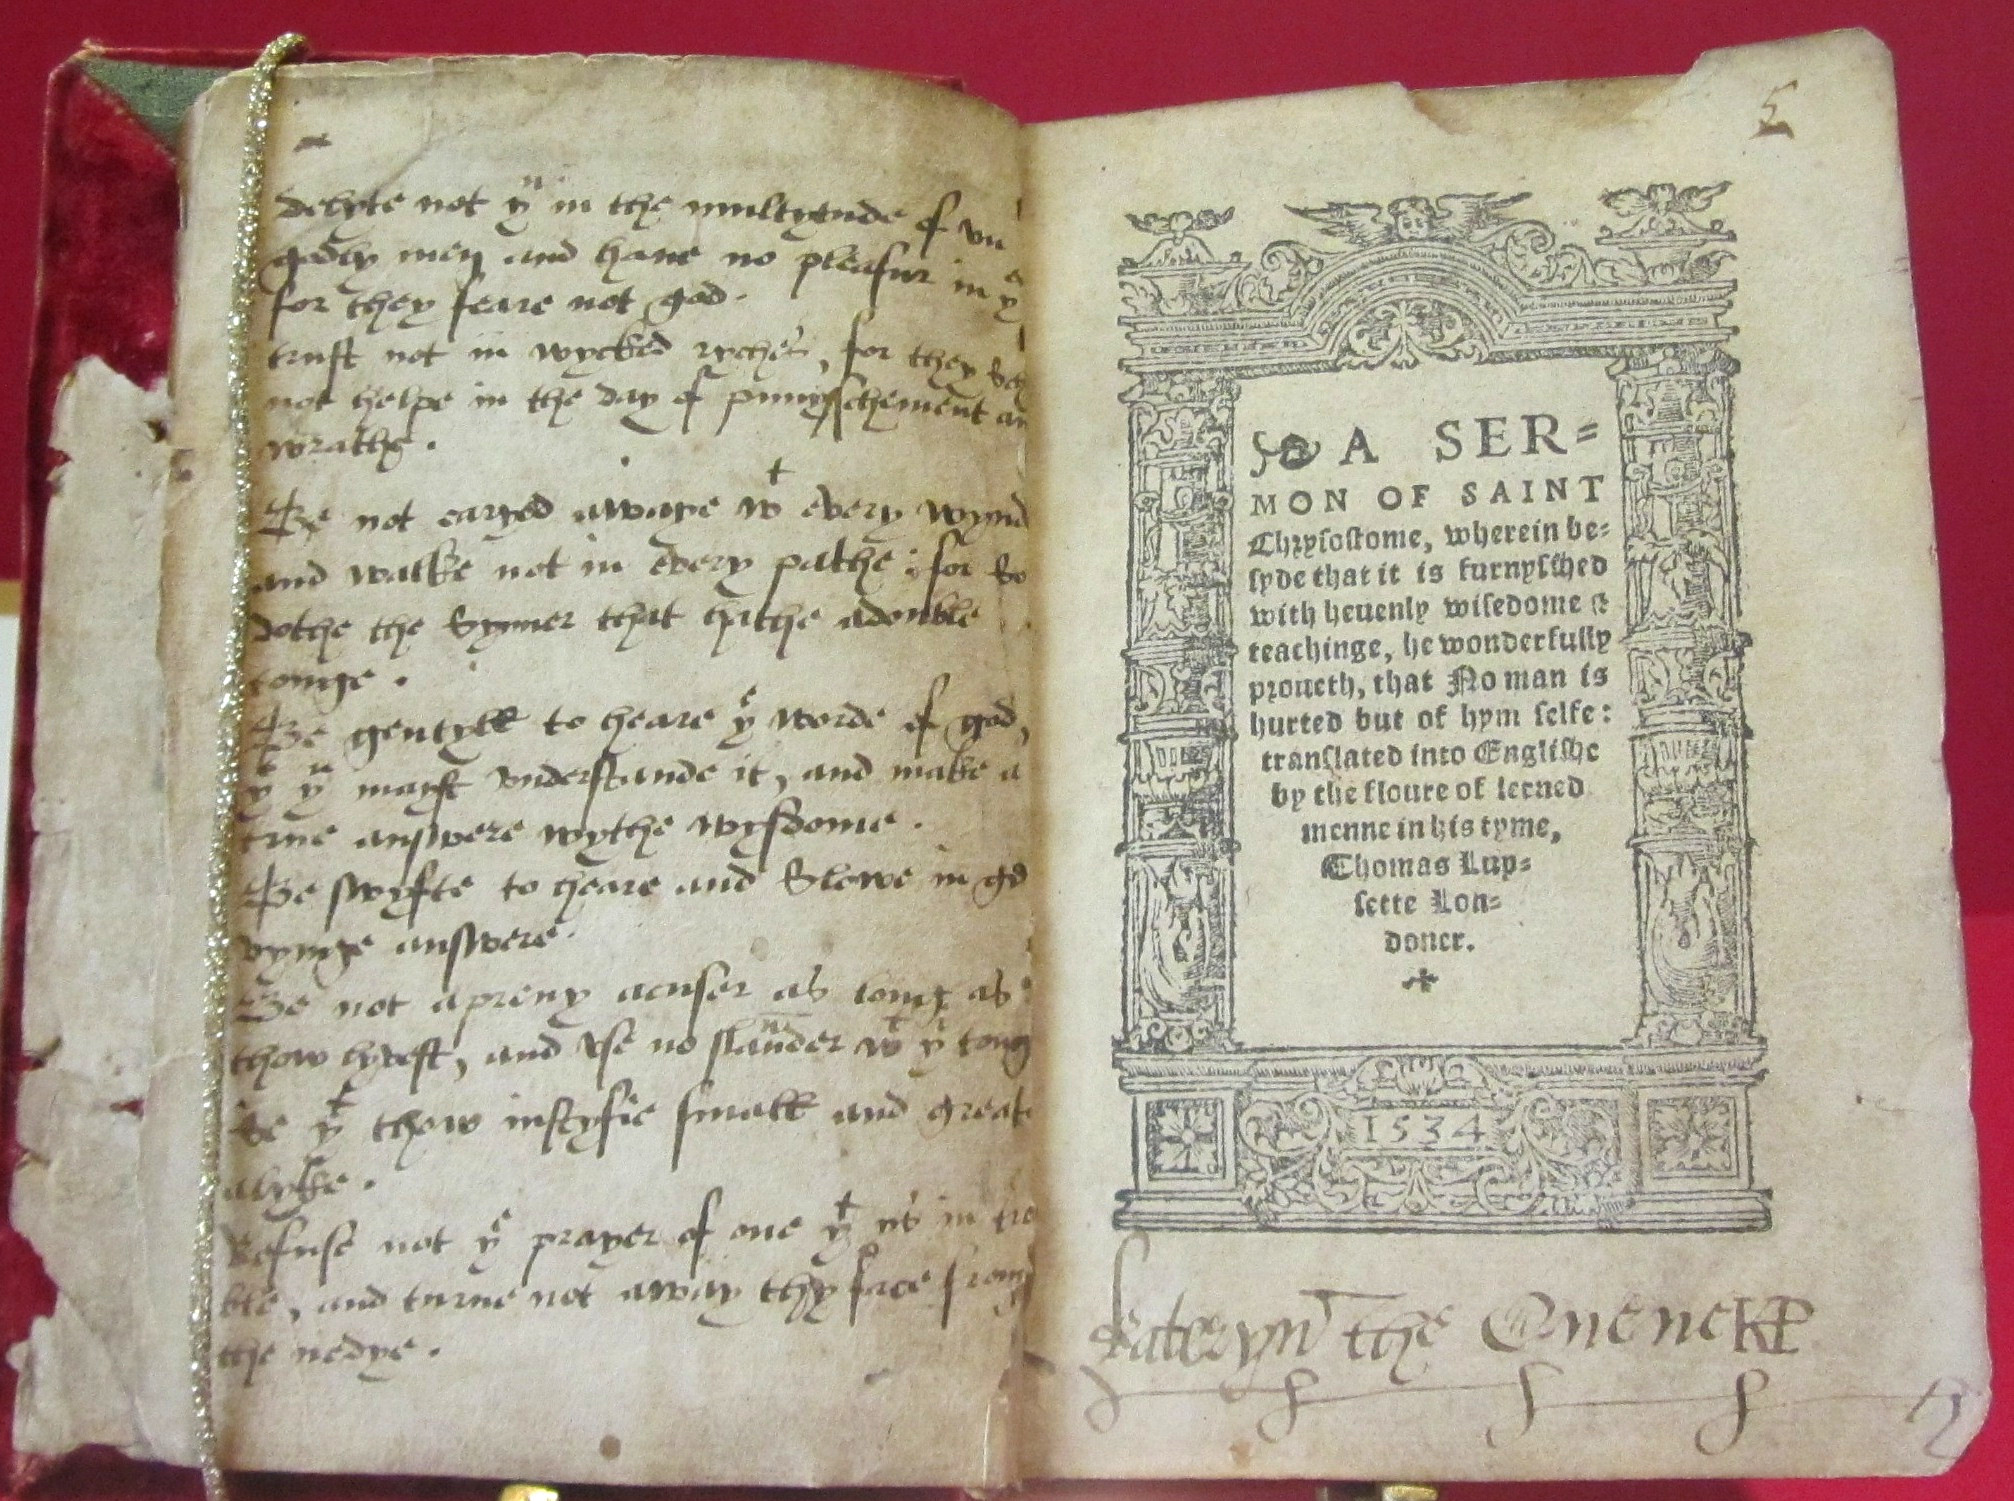 delyte not yͧ in the multytude of vn
godly men and haue no pleasur in yͤ
for they feare not god.
trust not in wycked ryches, for they
not helpe in the day of punnyschement an
wrathe.
Be not caryed awaye wͭ every wynd
and walke not in every pathe: for so
dothe the Synner that hathe a double
tonge.
Be gentyll to heare yͤ worde of god,
yͭ yͧ mayst vnderstande it, and make a
true answere wythe wysdome.
Be swyfte to heare and Slowe in ge
vynge answere.
Be not a preuy acuser as long as
thow lyvest, and vse no slaunder wͭ yͥ tong
Se yͭ thow iustyfie small and greate
alyke.
Refuse not yͤ prayer of one yͭ ys in tro
ble, and turne not away thy face from
the nedye.
A SER=
MON OF SAINT
Chrysostome, wherein be=
syde that it is furnysshed
with heuenly wisedome &
teachinge, he wonderfully
proueth, that No man is
hurted but of hym selfe:
translated into Englishe
by the floure of lerned
menne in his tyme,
Thomas Lup=
sette Lon=
doner.
1534
Kateryn the Quene KP